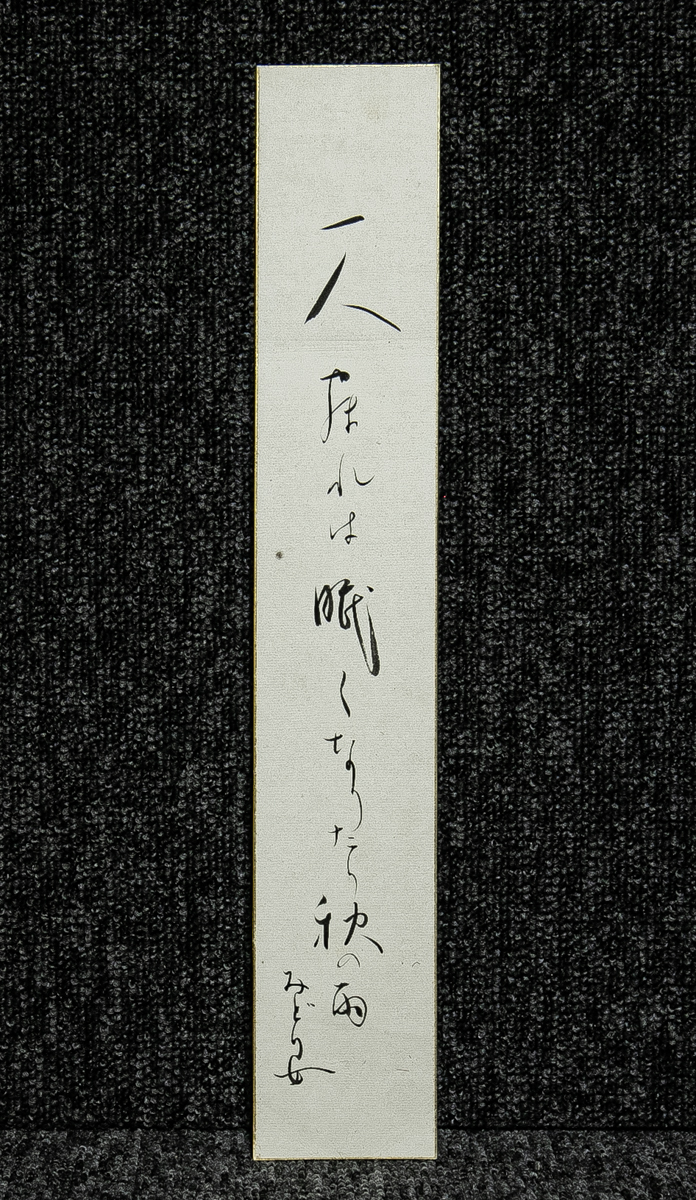 一人居れは眠くなりたる秋の雨
みどり女